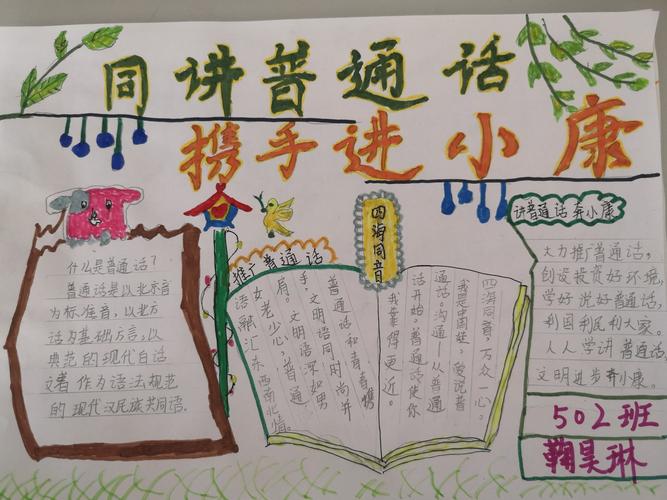 同讲普通话
携手进小康
什么是普通话?
普通话是以北京音
为标准音,以北方
话为基础方言,以
典范的现代白话
文著作为语法规范
的现代汉民族共同语。
推广普通话
普通话和青春携
手,文明语同时尚并
肩。文明语深起男
女老少心,普通
话融汇东西南北情。
四海同音
四海同音,万众一心。
我是中国娃,爱说普
通话。沟通—从普通
话开始,普通话使你
我靠得更近。
讲普通话 奔小康
大力推广普通话,
创设投资好环境,
学好说好普通话,
利国利民利大家,
人人学讲普通话,
文明进步奔小康。
502班
鞠昊琳